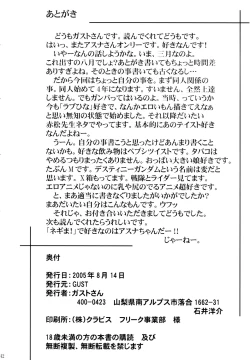 あとがき
どうもガストさんです。読んでくれてどうもです。
はいっ、またアスナさんオンリーです。好きなんです！
いやーなんの話しようかな。いま、三月なのよ。
これ出すの八月でしょ？あとがき書いてもちょっと時間差
ありすぎよね。そのときの事書いても古くなるし…
だから今回はちょっと自分の事を。まず同人関係の
事。同人始めて４年になります。すいません、全然上達
しません。でもガンバってはいるのよ。当時、っていうか
今も「ラブひな」好きで、なんかエロいもん描きてえなぁ
と思い無知の状態で始めました。それ以降だいたい
赤松先生ネタでやってます。基本的にあのテイスト好き
なんだよねー。
うーん。自分の事書こうと思ったけどあんまり書くこと
ないかも。好きな飲み物はペプシツイストです。タバコは
やめるつもりまったくありません。おっぱい大きい娘好きです。
たぶんＭです。デスティニーガンダムという名前は変だと
思います。Ｘ箱もってます。戦隊とライダー見てます。
エロアニメじゃないのに乳や尻のでるアニメ超好きです。
と、まあ適当に書きなぐりましたがいかがでしたか？
まあだいたい自分はこんなもんです。ウフッ
それじゃ、お付き合いいただきましてどうもでした。
次も読んでくれたらうれしいです。
「ネギま！」で好きなのはアスナちゃんだー！！
じゃーねー。
奥付
発行日：2005年８月14日
発行元：GUST
発行者：ガストさん
400-0423　山梨県南アルプス市落合 1662-31
石井洋介
印刷所：（株）クラビス　フリーク事業部　様
18歳未満の方の本書の購読　及び
無断複製、無断転載を禁じます